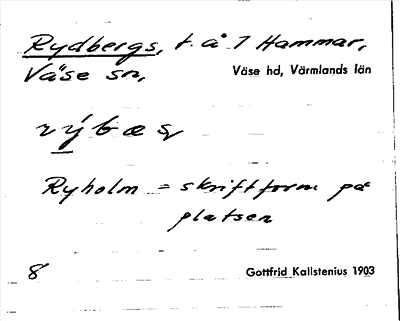 Rydbergs, t. å 7 Hammar,
Väse sn,
Väse hd, Värmlands län
rýbæs
Ryholm = skriftform på
platsen
8
Gottfrid Kallstenius 1903